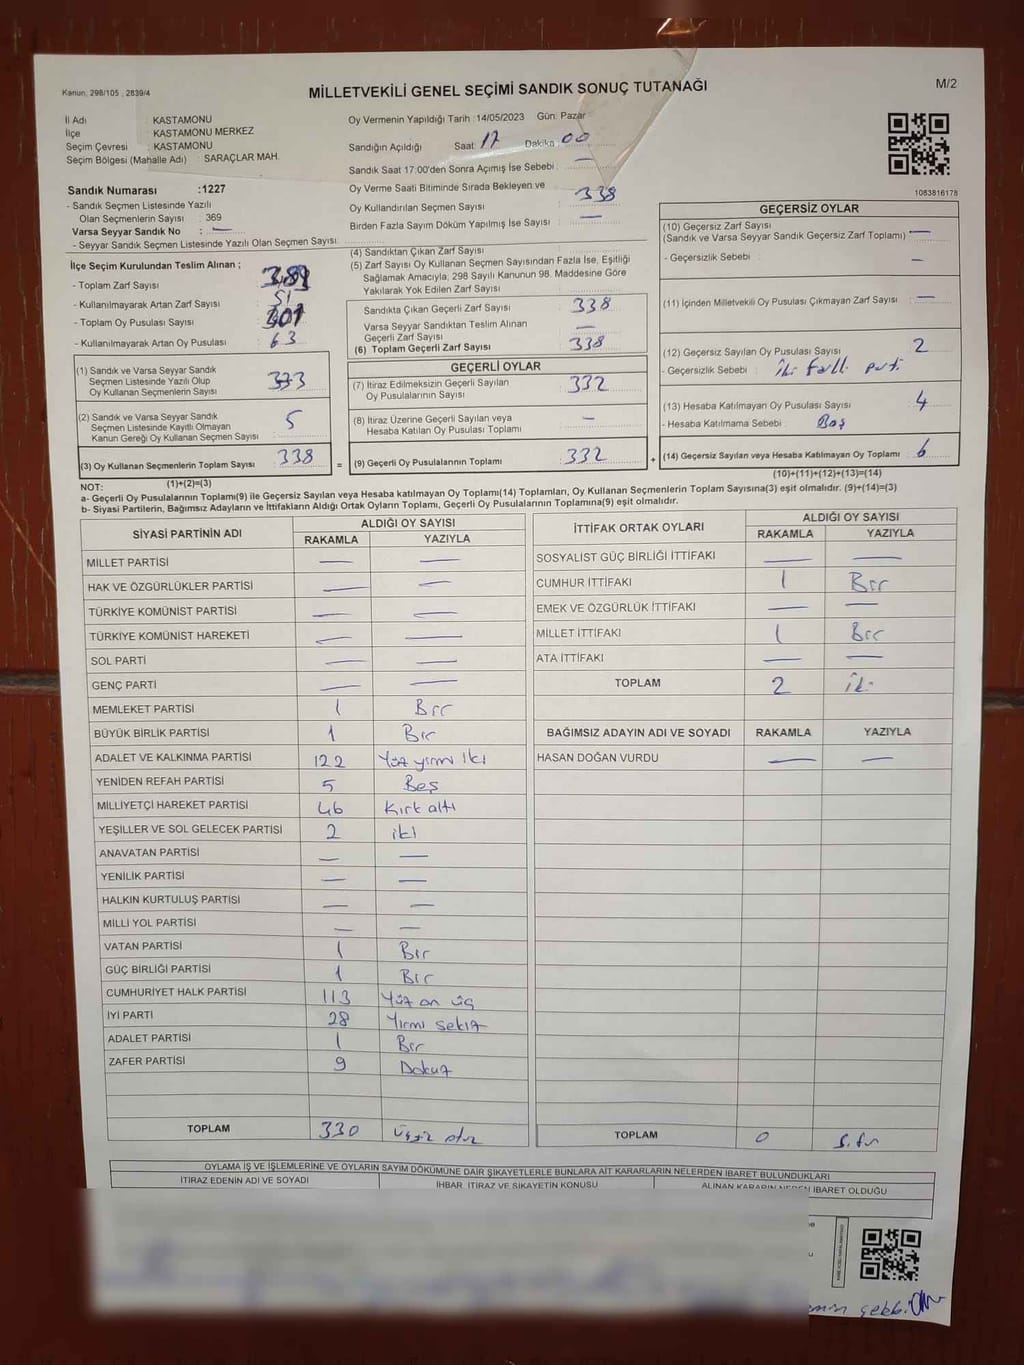 Kanun, 298/105 , 2839/4
MİLLETVEKİLİ GENEL SEÇİMİ SANDIK SONUÇ TUTANAĞI
M/2
İl Adı : KASTAMONU
İlçe : KASTAMONU MERKEZ
Seçim Çevresi : KASTAMONU
Seçim Bölgesi (Mahalle Adı) : SARAÇLAR MAH.
Oy Vermenin Yapıldığı Tarih : 14/05/2023 Gün: Pazar
Sandığın Açıldığı Saat 17 Dakika 00
Sandık Saat 17:00'den Sonra Açımış İse Sebebi : —
Oy Verme Saati Bitiminde Sırada Bekleyen ve
Oy Kullandırılan Seçmen Sayısı 338
Birden Fazla Sayım Döküm Yapılmış İse Sayısı —
1083816178
Sandık Numarası :1227
- Sandık Seçmen Listesinde Yazılı
Olan Seçmenlerin Sayısı : 369
Varsa Seyyar Sandık No : —
- Seyyar Sandık Seçmen Listesinde Yazılı Olan Seçmen Sayısı
İlçe Seçim Kurulundan Teslim Alınan ;
- Toplam Zarf Sayısı
- Kullanılmayarak Artan Zarf Sayısı 51
- Toplam Oy Pusulası Sayısı
- Kullanılmayarak Artan Oy Pusulası 63
(1) Sandık ve Varsa Seyyar Sandık
Seçmen Listesinde Yazılı Olup
Oy Kullanan Seçmenlerin Sayısı
(2) Sandık ve Varsa Seyyar Sandık
Seçmen Listesinde Kayıtlı Olmayan
Kanun Gereği Oy Kullanan Seçmen Sayısı 5
(3) Oy Kullanan Seçmenlerin Toplam Sayısı 338
(1)+(2)=(3)
(4) Sandıktan Çıkan Zarf Sayısı
(5) Zarf Sayısı Oy Kullanan Seçmen Sayısından Fazla İse, Eşitliği
Sağlamak Amacıyla, 298 Sayılı Kanunun 98. Maddesine Göre
Yakılarak Yok Edilen Zarf Sayısı
Sandıkta Çıkan Geçerli Zarf Sayısı 338
Varsa Seyyar Sandıktan Teslim Alınan
Geçerli Zarf Sayısı —
(6) Toplam Geçerli Zarf Sayısı 338
GEÇERLİ OYLAR
(7) İtiraz Edilmeksizin Geçerli Sayılan
Oy Pusulalarının Sayısı 332
(8) İtiraz Üzerine Geçerli Sayılan veya
Hesaba Katılan Oy Pusulası Toplamı —
= (9) Geçerli Oy Pusulalarının Toplamı 332
GEÇERSİZ OYLAR
(10) Geçersiz Zarf Sayısı
(Sandık ve Varsa Seyyar Sandık Geçersiz Zarf Toplamı) —
- Geçersizlik Sebebi : —
(11) İçinden Milletvekili Oy Pusulası Çıkmayan Zarf Sayısı —
(12) Geçersiz Sayılan Oy Pusulası Sayısı 2
- Geçersizlik Sebebi : iki
(13) Hesaba Katılmayan Oy Pusulası Sayısı 4
- Hesaba Katılmama Sebebi : Boş
+ (14) Geçersiz Sayılan veya Hesaba Katılmayan Oy Toplamı 6
(10)+(11)+(12)+(13)=(14)
NOT:
a- Geçerli Oy Pusulalarının Toplamı(9) ile Geçersiz Sayılan veya Hesaba katılmayan Oy Toplamı(14) Toplamları, Oy Kullanan Seçmenlerin Toplam Sayısına(3) eşit olmalıdır. (9)+(14)=(3)
b- Siyasi Partilerin, Bağımsız Adayların ve İttifakların Aldığı Ortak Oyların Toplamı, Geçerli Oy Pusulalarının Toplamına(9) eşit olmalıdır.
SİYASİ PARTİNİN ADI ALDIĞI OY SAYISI
RAKAMLA YAZIYLA
MİLLET PARTİSİ — —
HAK VE ÖZGÜRLÜKLER PARTİSİ — —
TÜRKİYE KOMÜNİST PARTİSİ — —
TÜRKİYE KOMÜNİST HAREKETİ — —
SOL PARTİ — —
GENÇ PARTİ — —
MEMLEKET PARTİSİ 1 Bir
BÜYÜK BİRLİK PARTİSİ 1 Bir
ADALET VE KALKINMA PARTİSİ 122 Yüz yirmi iki
YENİDEN REFAH PARTİSİ 5 Beş
MİLLİYETÇİ HAREKET PARTİSİ 46 Kırk altı
YEŞİLLER VE SOL GELECEK PARTİSİ 2 iki
ANAVATAN PARTİSİ — —
YENİLİK PARTİSİ — —
HALKIN KURTULUŞ PARTİSİ — —
MİLLİ YOL PARTİSİ — —
VATAN PARTİSİ 1 Bir
GÜÇ BİRLİĞİ PARTİSİ 1 Bir
CUMHURİYET HALK PARTİSİ 113 Yüz on üç
İYİ PARTİ 28 Yirmi sekiz
ADALET PARTİSİ 1 Bir
ZAFER PARTİSİ 9 Dokuz
TOPLAM 330 üçyüz otuz
İTTİFAK ORTAK OYLARI ALDIĞI OY SAYISI
RAKAMLA YAZIYLA
SOSYALIST GÜÇ BİRLİĞİ İTTİFAKI — —
CUMHUR İTTİFAKI 1 Bir
EMEK VE ÖZGÜRLÜK İTTİFAKI — —
MİLLET İTTİFAKI 1 Bir
ATA İTTİFAKI — —
TOPLAM 2 iki
BAĞIMSIZ ADAYIN ADI VE SOYADI RAKAMLA YAZIYLA
HASAN DOĞAN VURDU — —
TOPLAM 0 Sıfır
OYLAMA İŞ VE İŞLEMLERİNE VE OYLARIN SAYIM DÖKÜMÜNE DAİR ŞİKAYETLERLE BUNLARA AİT KARARLARIN NELERDEN İBARET BULUNDUKLARI
İTİRAZ EDENİN ADI VE SOYADI İHBAR, İTİRAZ VE ŞİKAYETİN KONUSU ALINAN KARARIN NEDEN İBARET OLDUĞU